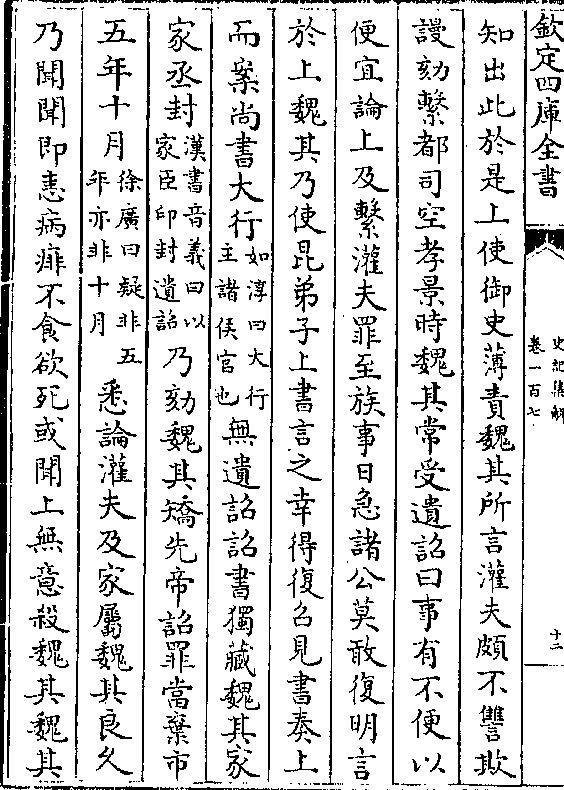 欽定四庫全書
史記集解
卷一百七
十二
知出此於是上使御史薄責魏其所言灌夫頗不讐欺
謾劾繫都司空孝景時魏其常受遺詔曰事有不便以
便宜論上及繫灌夫罪至族事日急諸公莫敢復明言
於上魏其乃使昆弟子上書言之幸得復召見書奏上
而案尚書大行如淳曰大行主諸侯官也無遺詔詔書獨藏魏其家
家丞封漢書音義曰以家臣印封遺詔乃劾魏其矯先帝詔罪當棄市
五年十月徐廣曰疑非五年亦非十月悉論灌夫及家屬魏其良久
乃聞聞即恚病痱不食欲死或聞上無意殺魏其魏其